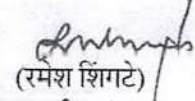 (रमेश शिंगटे)